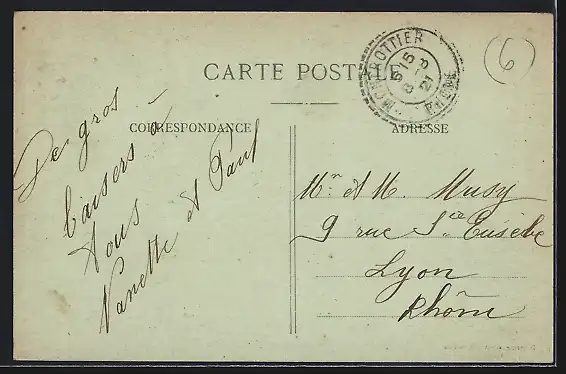 CARTE POSTALE
CORRESPONDANCE
ADRESSE
De gros
baisers à
tous
Nanette et Paul
Mr et M. Musy
9 rue Ste Eusèbe
Lyon
Rhône
MONTROTTIER
RHONE
15
8
21
6